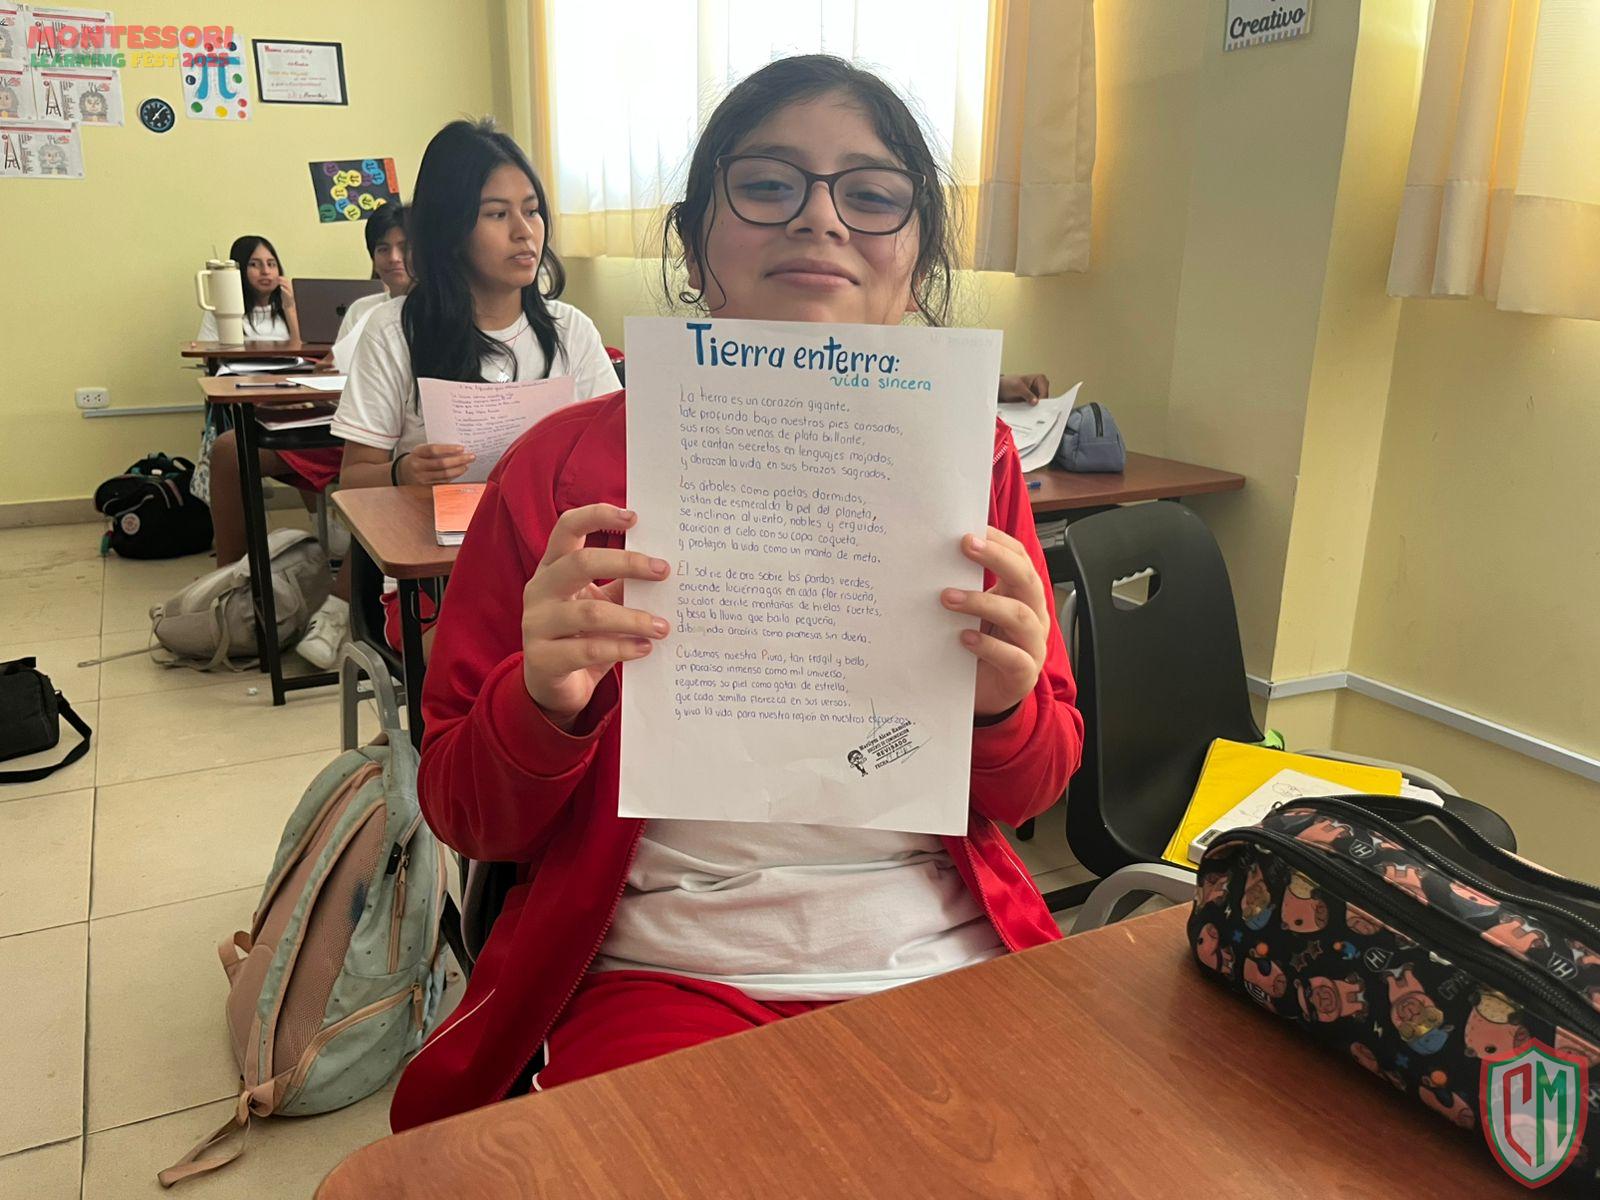 MONTESSORI
LEARNING FEST 2025
Creativo
Tierra enterra:
vida sincera
La tierra es un corazón gigante.
late profundo bajo nuestros pies cansados,
sus ríos son venas de plata brillante,
que cantan secretos en lenguajes mojados,
y abrazan la vida en sus brazos sagrados.
Los árboles como poetas dormidos,
vistan de esmeralda la piel del planeta,
se inclinan al viento, nobles y erguidos,
acarician el cielo con su copa coqueta,
y protejen la vida como un manto de meta.
El sol rie de oro sobre los pardos verdes,
enciende luciérnagas en cada flor risueña,
su calor derrite montañas de hielos fuertes,
y besa la lluvia que baila pequeña,
dibujando arcoíris como promesas sin dueña.
Cuidemos nuestra Piura, tan frágil y bella,
un paraíso inmenso como mil universo,
reguemos su piel como gotas de estrella,
que cada semilla florezca en sus versos.
y viva la vida para nuestra región en nuestros esfuerzos.
DOCENTE DE COMUNICACIÓN
REVISADO
FECHA:
CM